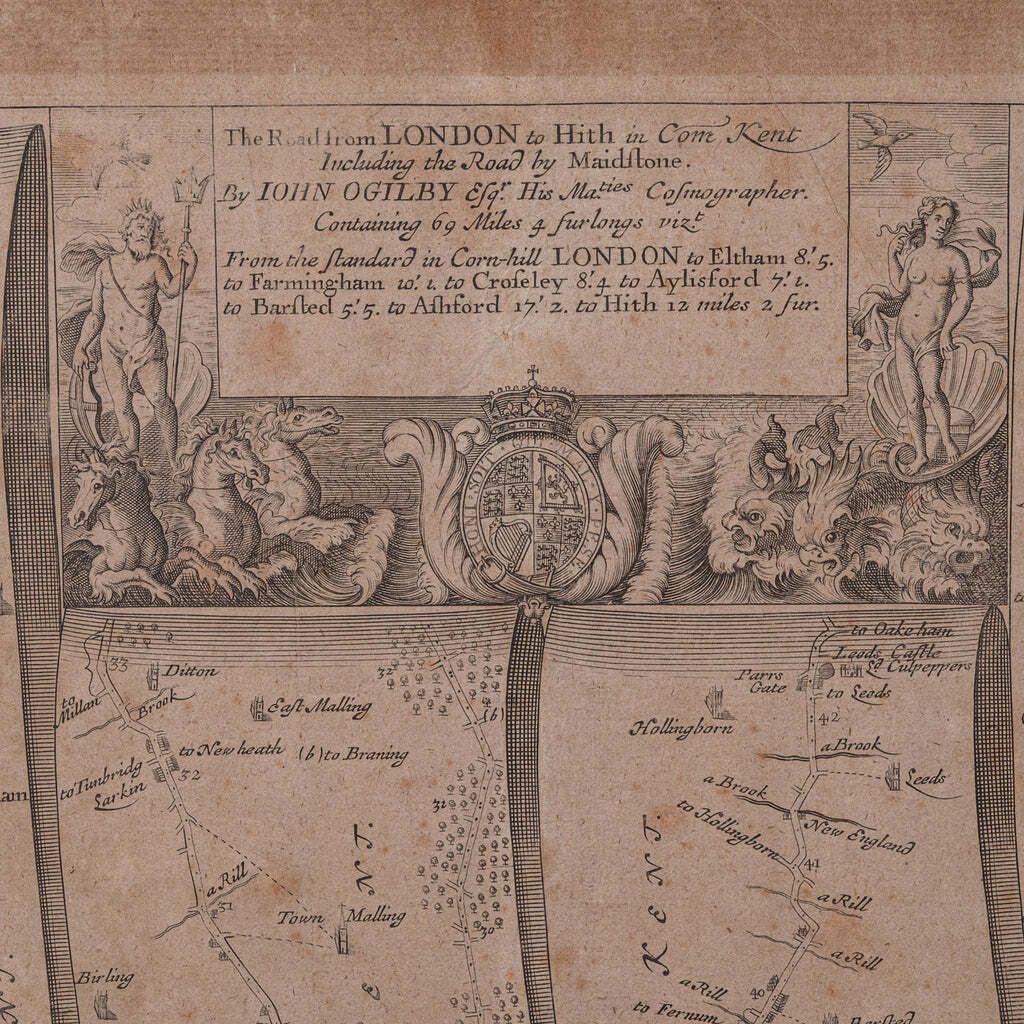 The Road from LONDON to Hith in Com Kent
Including the Road by Maidstone.
By IOHN OGILBY Esqr. His Ma.ties Cosmographer.
Containing 69 Miles 4 furlongs viz.t
From the standard in Corn-hill LONDON to Eltham 8'. 5.
to Farmingham 10'. 1. to Croseley 8'. 4 to Aylisford 7'. 1.
to Barsted 5'. 5. to Ashford 17'. 2. to Hith 12 miles 2 fur.
HONI SOIT QUI MAL Y PENSE
33
Ditton
to Millan
Brook
East Malling
to New heath
32
to Tunbridg
Larkin
a Rill
31
Town Malling
Birling
32
(b)
(b) to Braning
31
30
KENT.
to Oakeham
Leeds Castle
Ld Culpeppers
Parrs Gate
to Leeds
42
Hollingborn
a Brook
Leeds
a Brook
to Hollingborn
New England
41
a Rill
a Rill
40
a Rill
to Fernum
Barsted